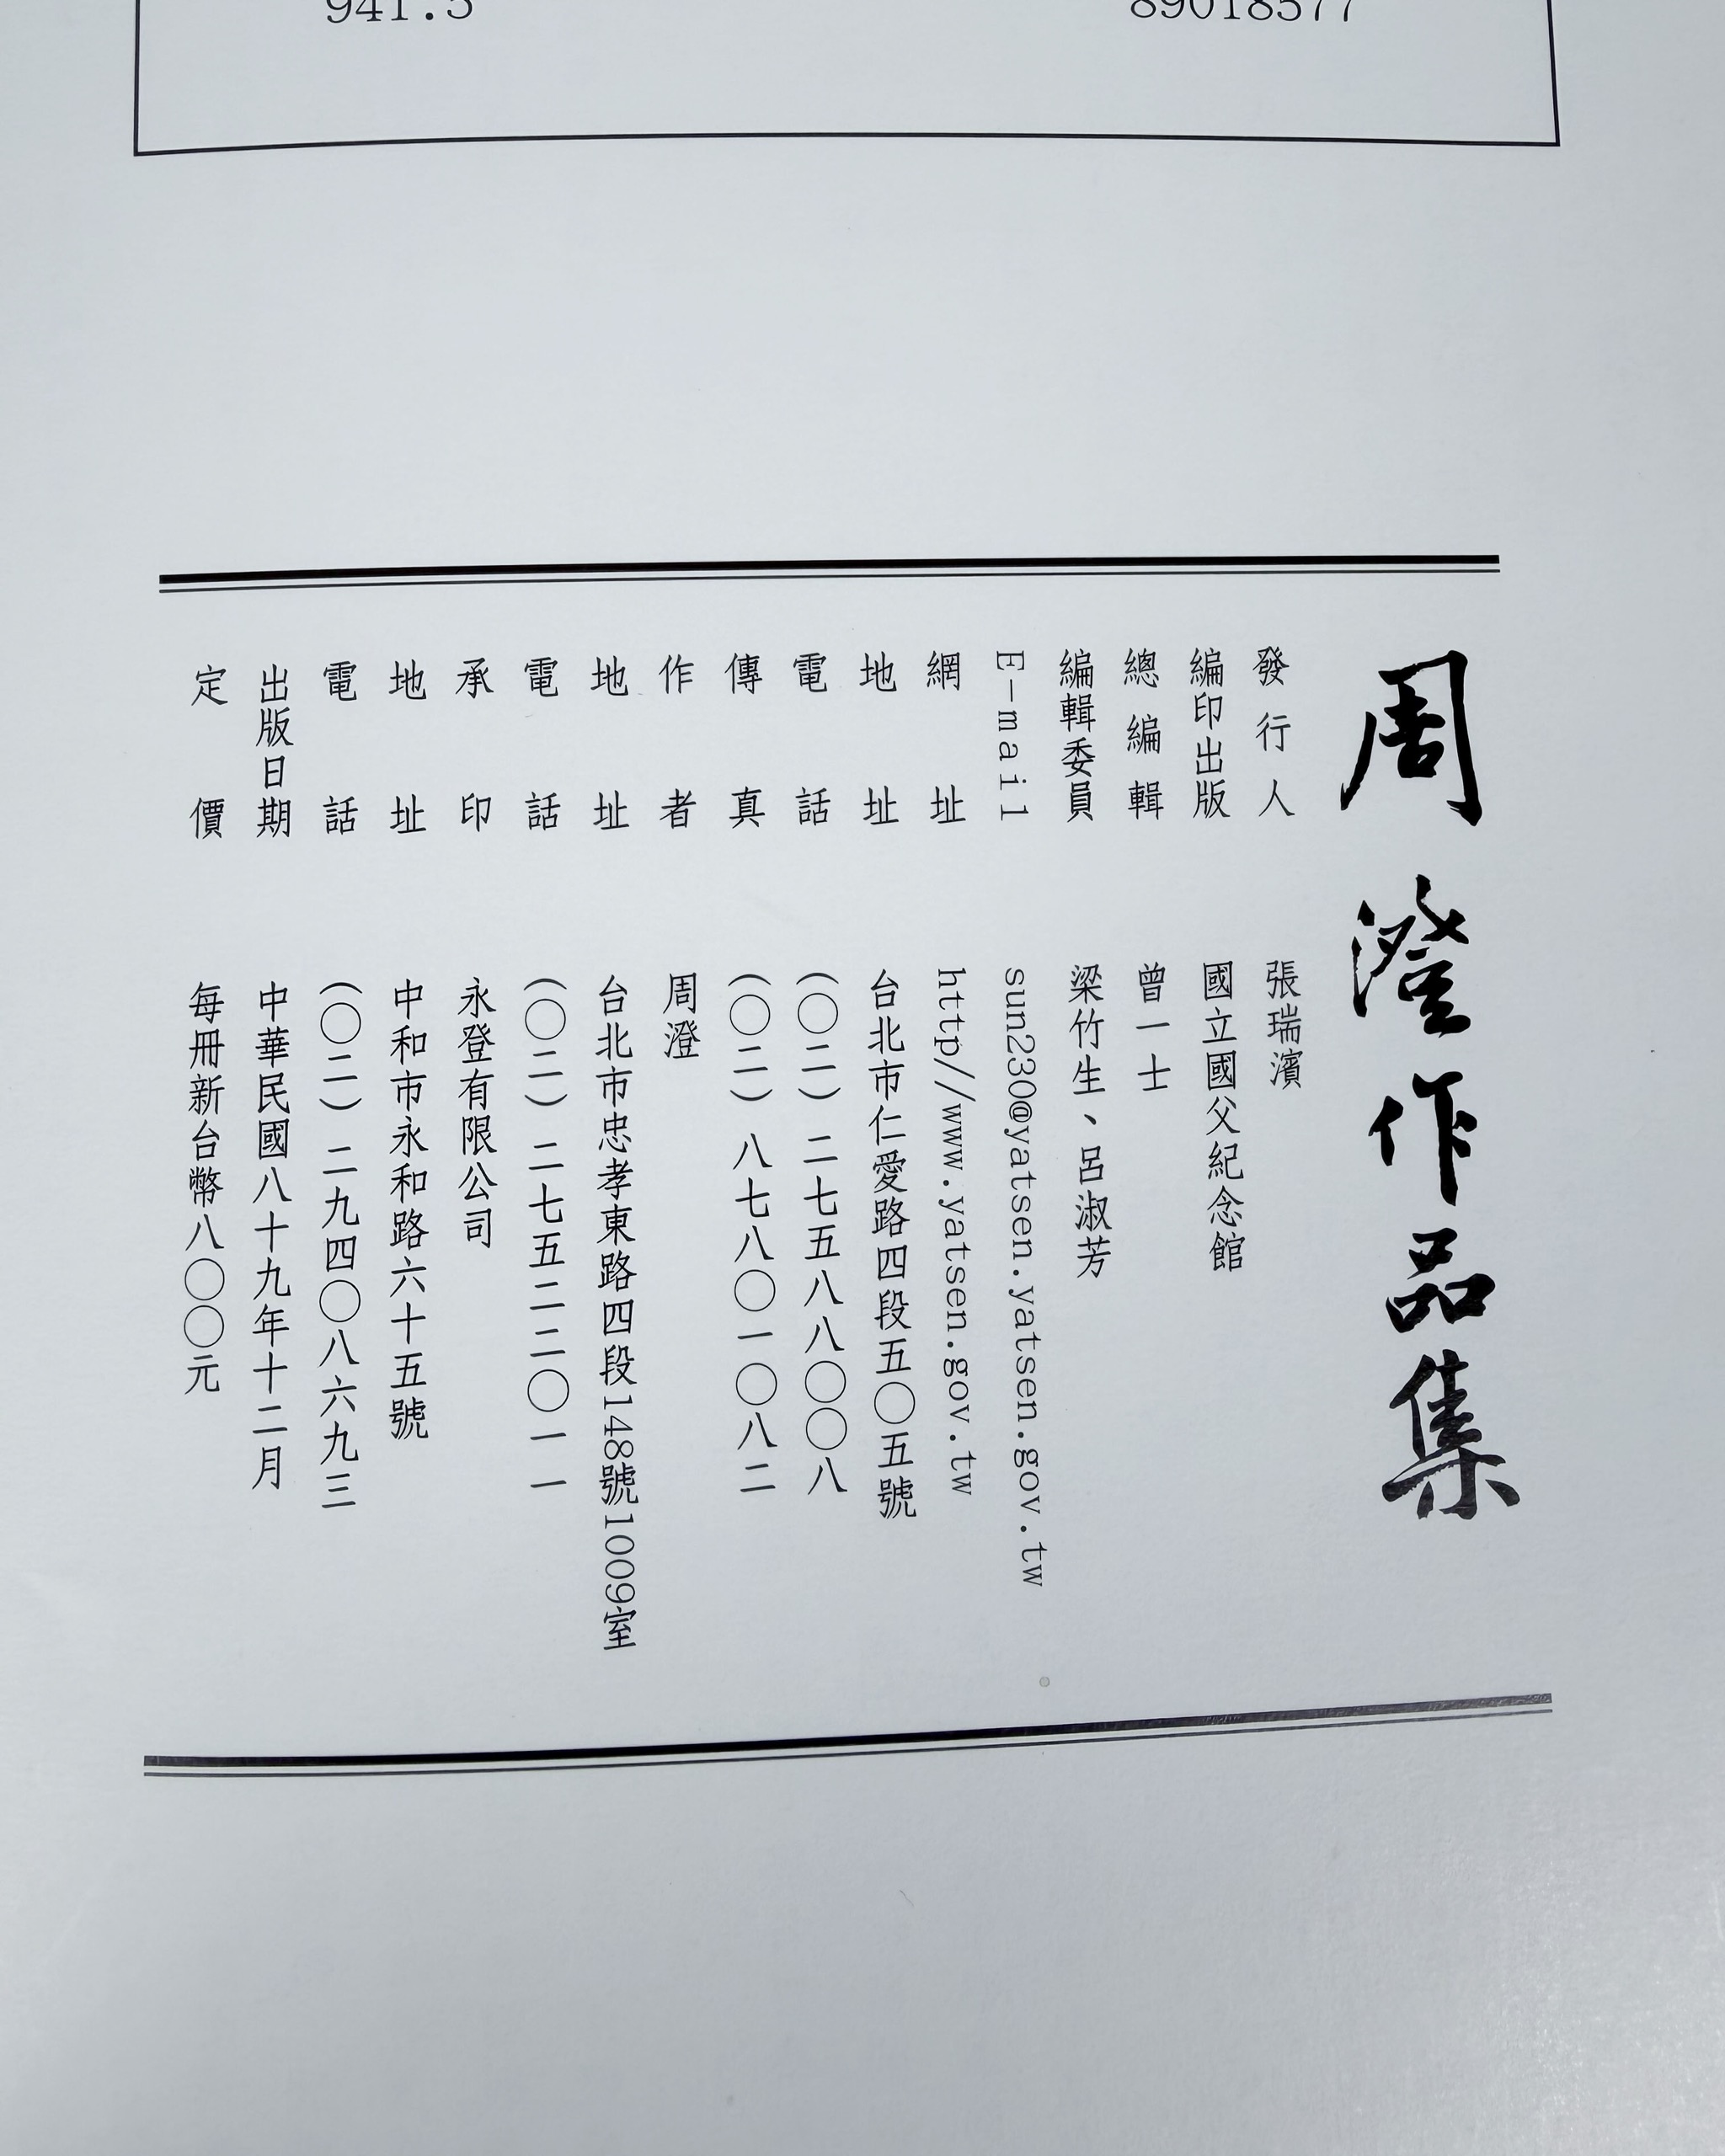 941.5 89018577
周澄作品集
發行人 張瑞濱
編印出版 國立國父紀念館
總編輯 曾一士
編輯委員 梁竹生、呂淑芳
E-mail sun230@yatsen.yatsen.gov.tw
網址 http//www.yatsen.gov.tw
地址 台北市仁愛路四段五〇五號
電話 (〇二)二七五八八〇〇八
傳真 (〇二)八七八〇一〇八二
作者 周澄
地址 台北市忠孝東路四段148號1009室
電話 (〇二)二七五二二〇一一
承印 永登有限公司
地址 中和市永和路六十五號
電話 (〇二)二九四〇八六九三
出版日期 中華民國八十九年十二月
定價 每冊新台幣八〇〇元